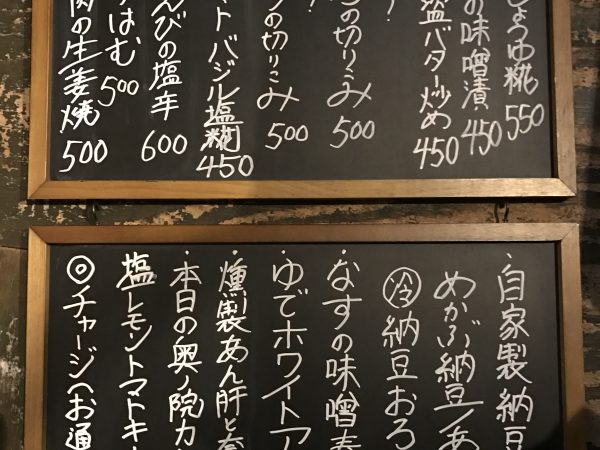 しょうゆ糀 550
の味噌漬 450
塩バター炒め 450
の切りこみ 500
の切りこみ 500
トバジル塩糀 450
んびの塩辛 600
はむ 500
肉の生姜焼 500
・自家製納豆
めかぶ納豆/あ
冷 納豆おろ
・なすの味噌
・ゆでホワイトア
・燻製あん肝と
・本日の奥ノ院カ
塩レモントマトキ
◎チャージ(お通